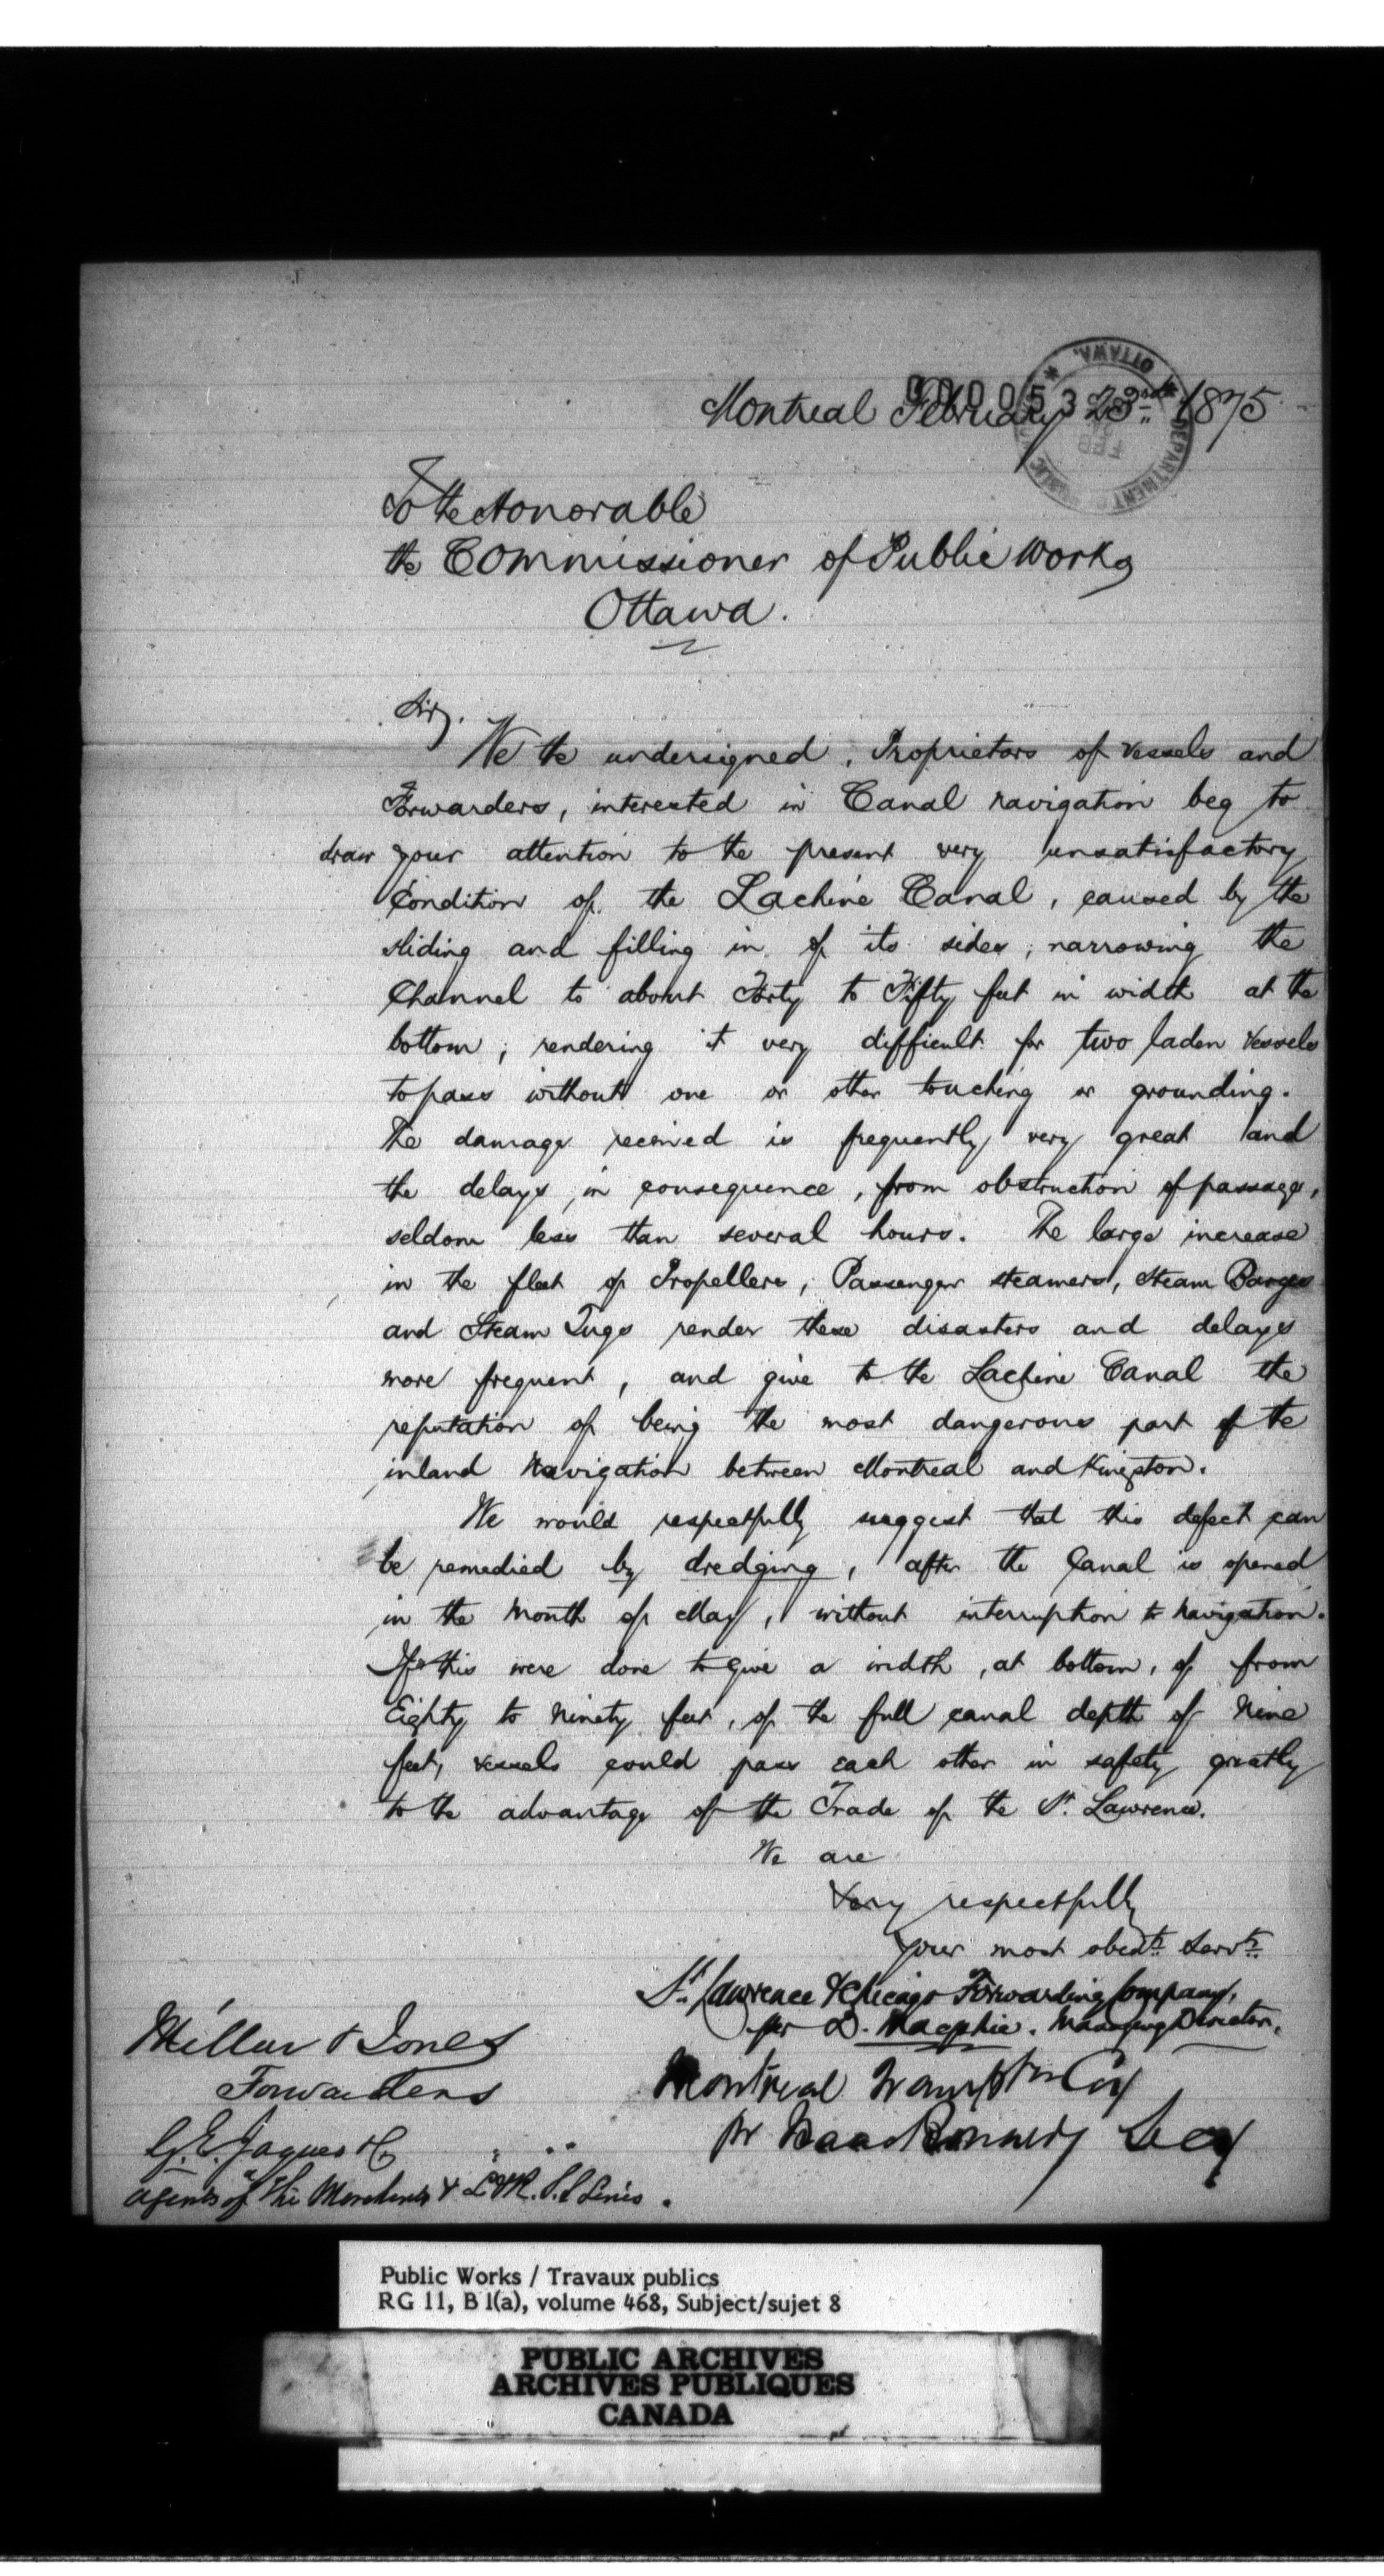 000053
Montreal February 23rd 1875
DEPARTMENT PUBLIC
OTTAWA.
FEB
To the Honorable
the Commissioner of Public Works
Ottawa.
Sir,
We the undersigned, Proprietors of Vessels and
Forwarders, interested in Canal navigation beg to
draw your attention to the present very unsatisfactory
Condition of the Lachine Canal, caused by the
sliding and filling in of its sides, narrowing the
Channel to about Forty to Fifty feet in width at the
bottom, rendering it very difficult for two laden Vessels
to pass without one or other touching or grounding.
The damage received is frequently very great and
the delays, in consequence, from obstruction of passage,
seldom less than several hours. The large increase
in the fleet of Propellers, Passenger steamers, Steam Barges
and Steam Tugs render these disasters and delays
more frequent, and give to the Lachine Canal the
reputation of being the most dangerous part of the
inland Navigation between Montreal and Kingston.
We would respectfully suggest that this defect can
be remedied by dredging, after the Canal is opened
in the Month of May, without interruption to Navigation.
If this were done to give a width, at bottom, of from
Eighty to Ninety feet, of the full canal depth of Nine
feet, vessels could pass each other in safety greatly
to the advantage of the Trade of the St. Lawrence.
We are
Very respectfully
Your most obedt. Servts.
St. Lawrence & Chicago Forwarding Company,
per D. Macphie. Managing Director.
Millar & Jones
Forwarders
Montreal Transptn Coy
G. E. Jaques & Co " "
pr Secy
Agents of the Merchants & S.S. Lines.
Public Works / Travaux publics
RG 11, B 1(a), volume 468, Subject/sujet 8
PUBLIC ARCHIVES
ARCHIVES PUBLIQUES
CANADA